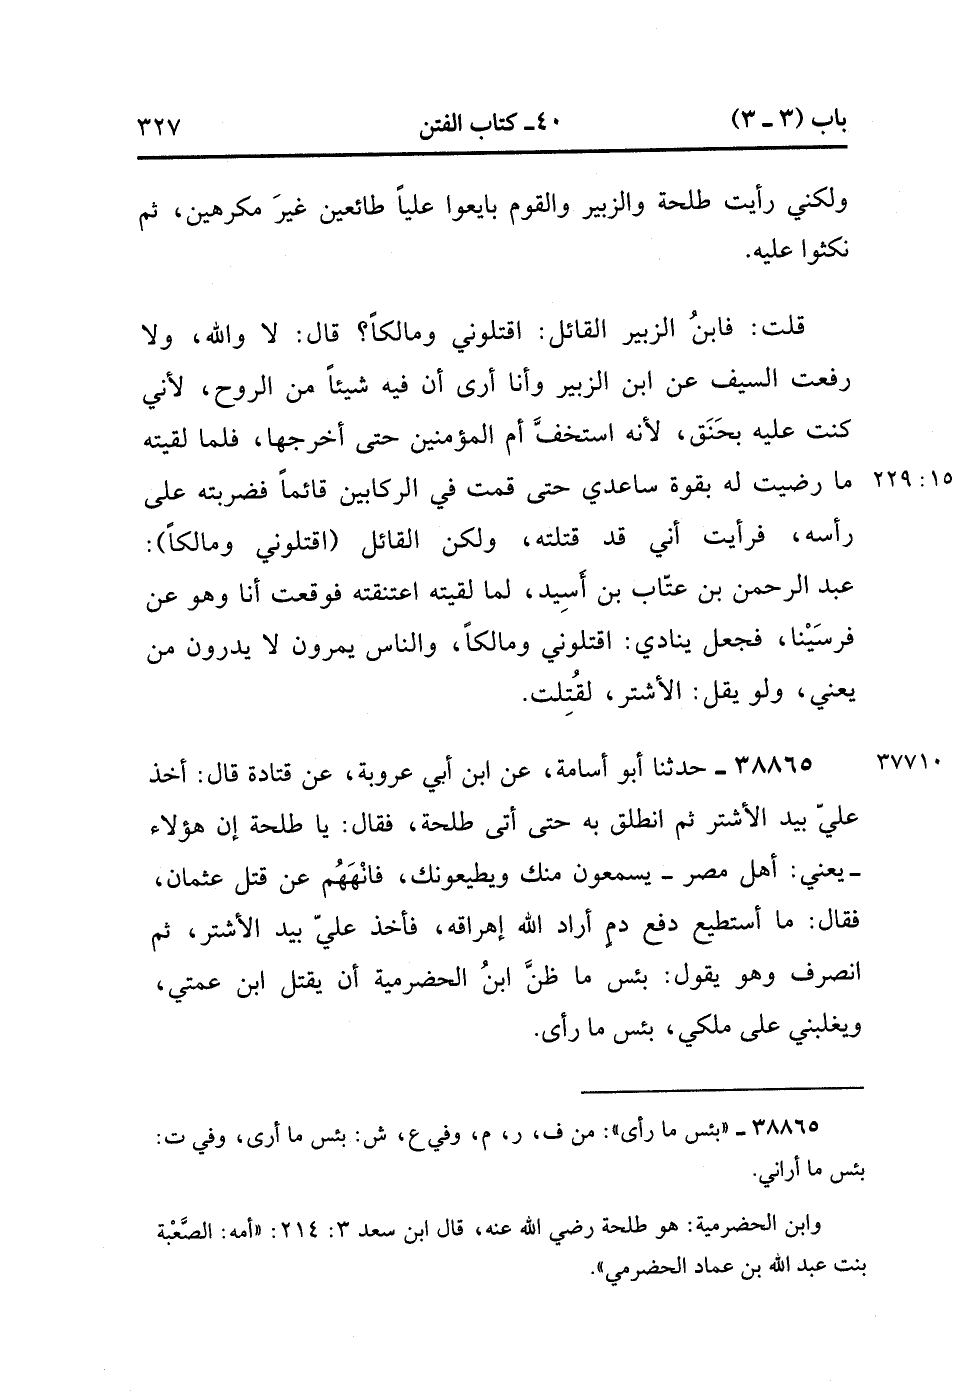 باب (٣ ـ ٣) ٤٠ـ كتاب الفتن ٣٢٧
ولكني رأيت طلحة والزبير والقوم بايعوا علياً طائعين غيرَ مكرهين، ثم
نكثوا عليه.
قلت: فابنُ الزبير القائل: اقتلوني ومالكاً؟ قال: لا والله، ولا
رفعت السيف عن ابن الزبير وأنا أرى أن فيه شيئاً من الروح، لأني
كنت عليه بحَنَق، لأنه استخفَّ أم المؤمنين حتى أخرجها، فلما لقيته
ما رضيت له بقوة ساعدي حتى قمت في الركابين قائماً فضربته على ١٥: ٢٢٩
رأسه، فرأيت أني قد قتلته، ولكن القائل (اقتلوني ومالكاً):
عبد الرحمن بن عتّاب بن أَسِيد، لما لقيته اعتنقته فوقعت أنا وهو عن
فرسَيْنا، فجعل ينادي: اقتلوني ومالكاً، والناس يمرون لا يدرون من
يعني، ولو يقل: الأشتر، لقُتِلت.
٣٨٨٦٥ ـ حدثنا أبو أسامة، عن ابن أبي عروبة، عن قتادة قال: أخذ ٣٧٧١٠
عليّ بيد الأشتر ثم انطلق به حتى أتى طلحة، فقال: يا طلحة إن هؤلاء
ـ يعني: أهل مصر ـ يسمعون منك ويطيعونك، فانْهَهُم عن قتل عثمان،
فقال: ما أستطيع دفع دمٍ أراد الله إهراقه، فأخذ عليّ بيد الأشتر، ثم
انصرف وهو يقول: بئس ما ظنَّ ابنُ الحضرمية أن يقتل ابن عمتي،
ويغلبني على ملكي، بئس ما رأى.
٣٨٨٦٥ ـ «بئس ما رأى»: من ف، ر، م، وفي ع، ش: بئس ما أرى، وفي ت:
بئس ما أراني.
وابن الحضرمية: هو طلحة رضي الله عنه، قال ابن سعد ٣: ٢١٤: «أمه: الصَّعْبة
بنت عبد الله بن عماد الحضرمي».